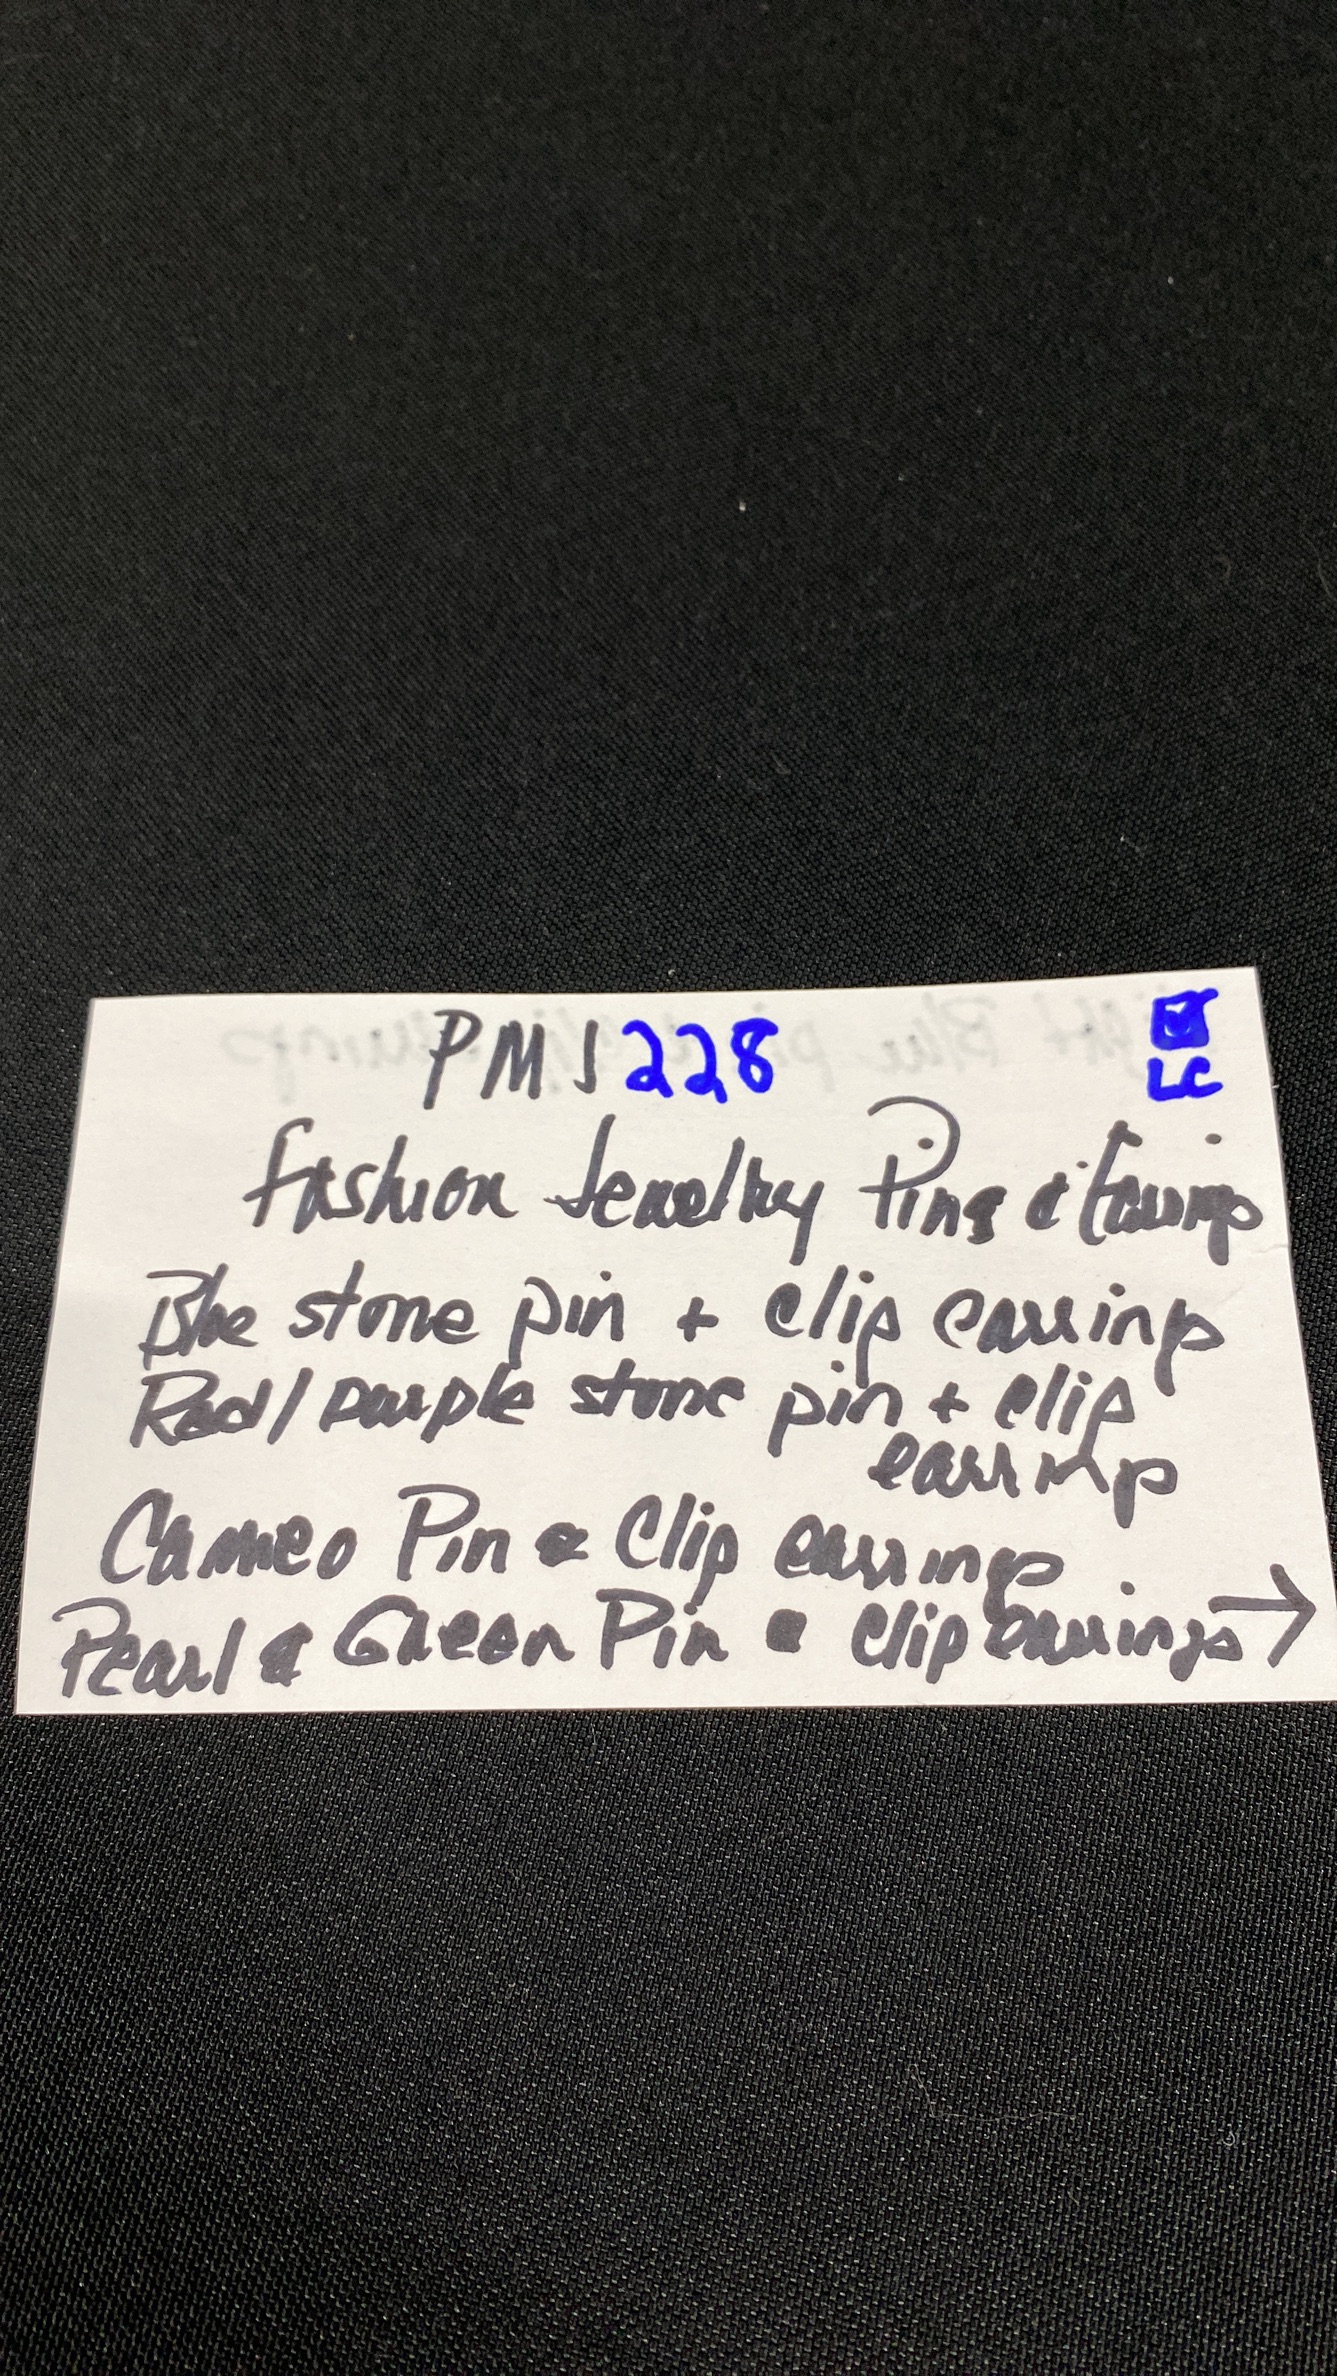 PMJ228
LC
Fashion Jewelry Pins & Earrings
Blue stone pin + clip earrings
Red/purple stone pin + clip
earrings
Cameo Pin & Clip earrings
Pearl & Green Pin & Clip Earrings →